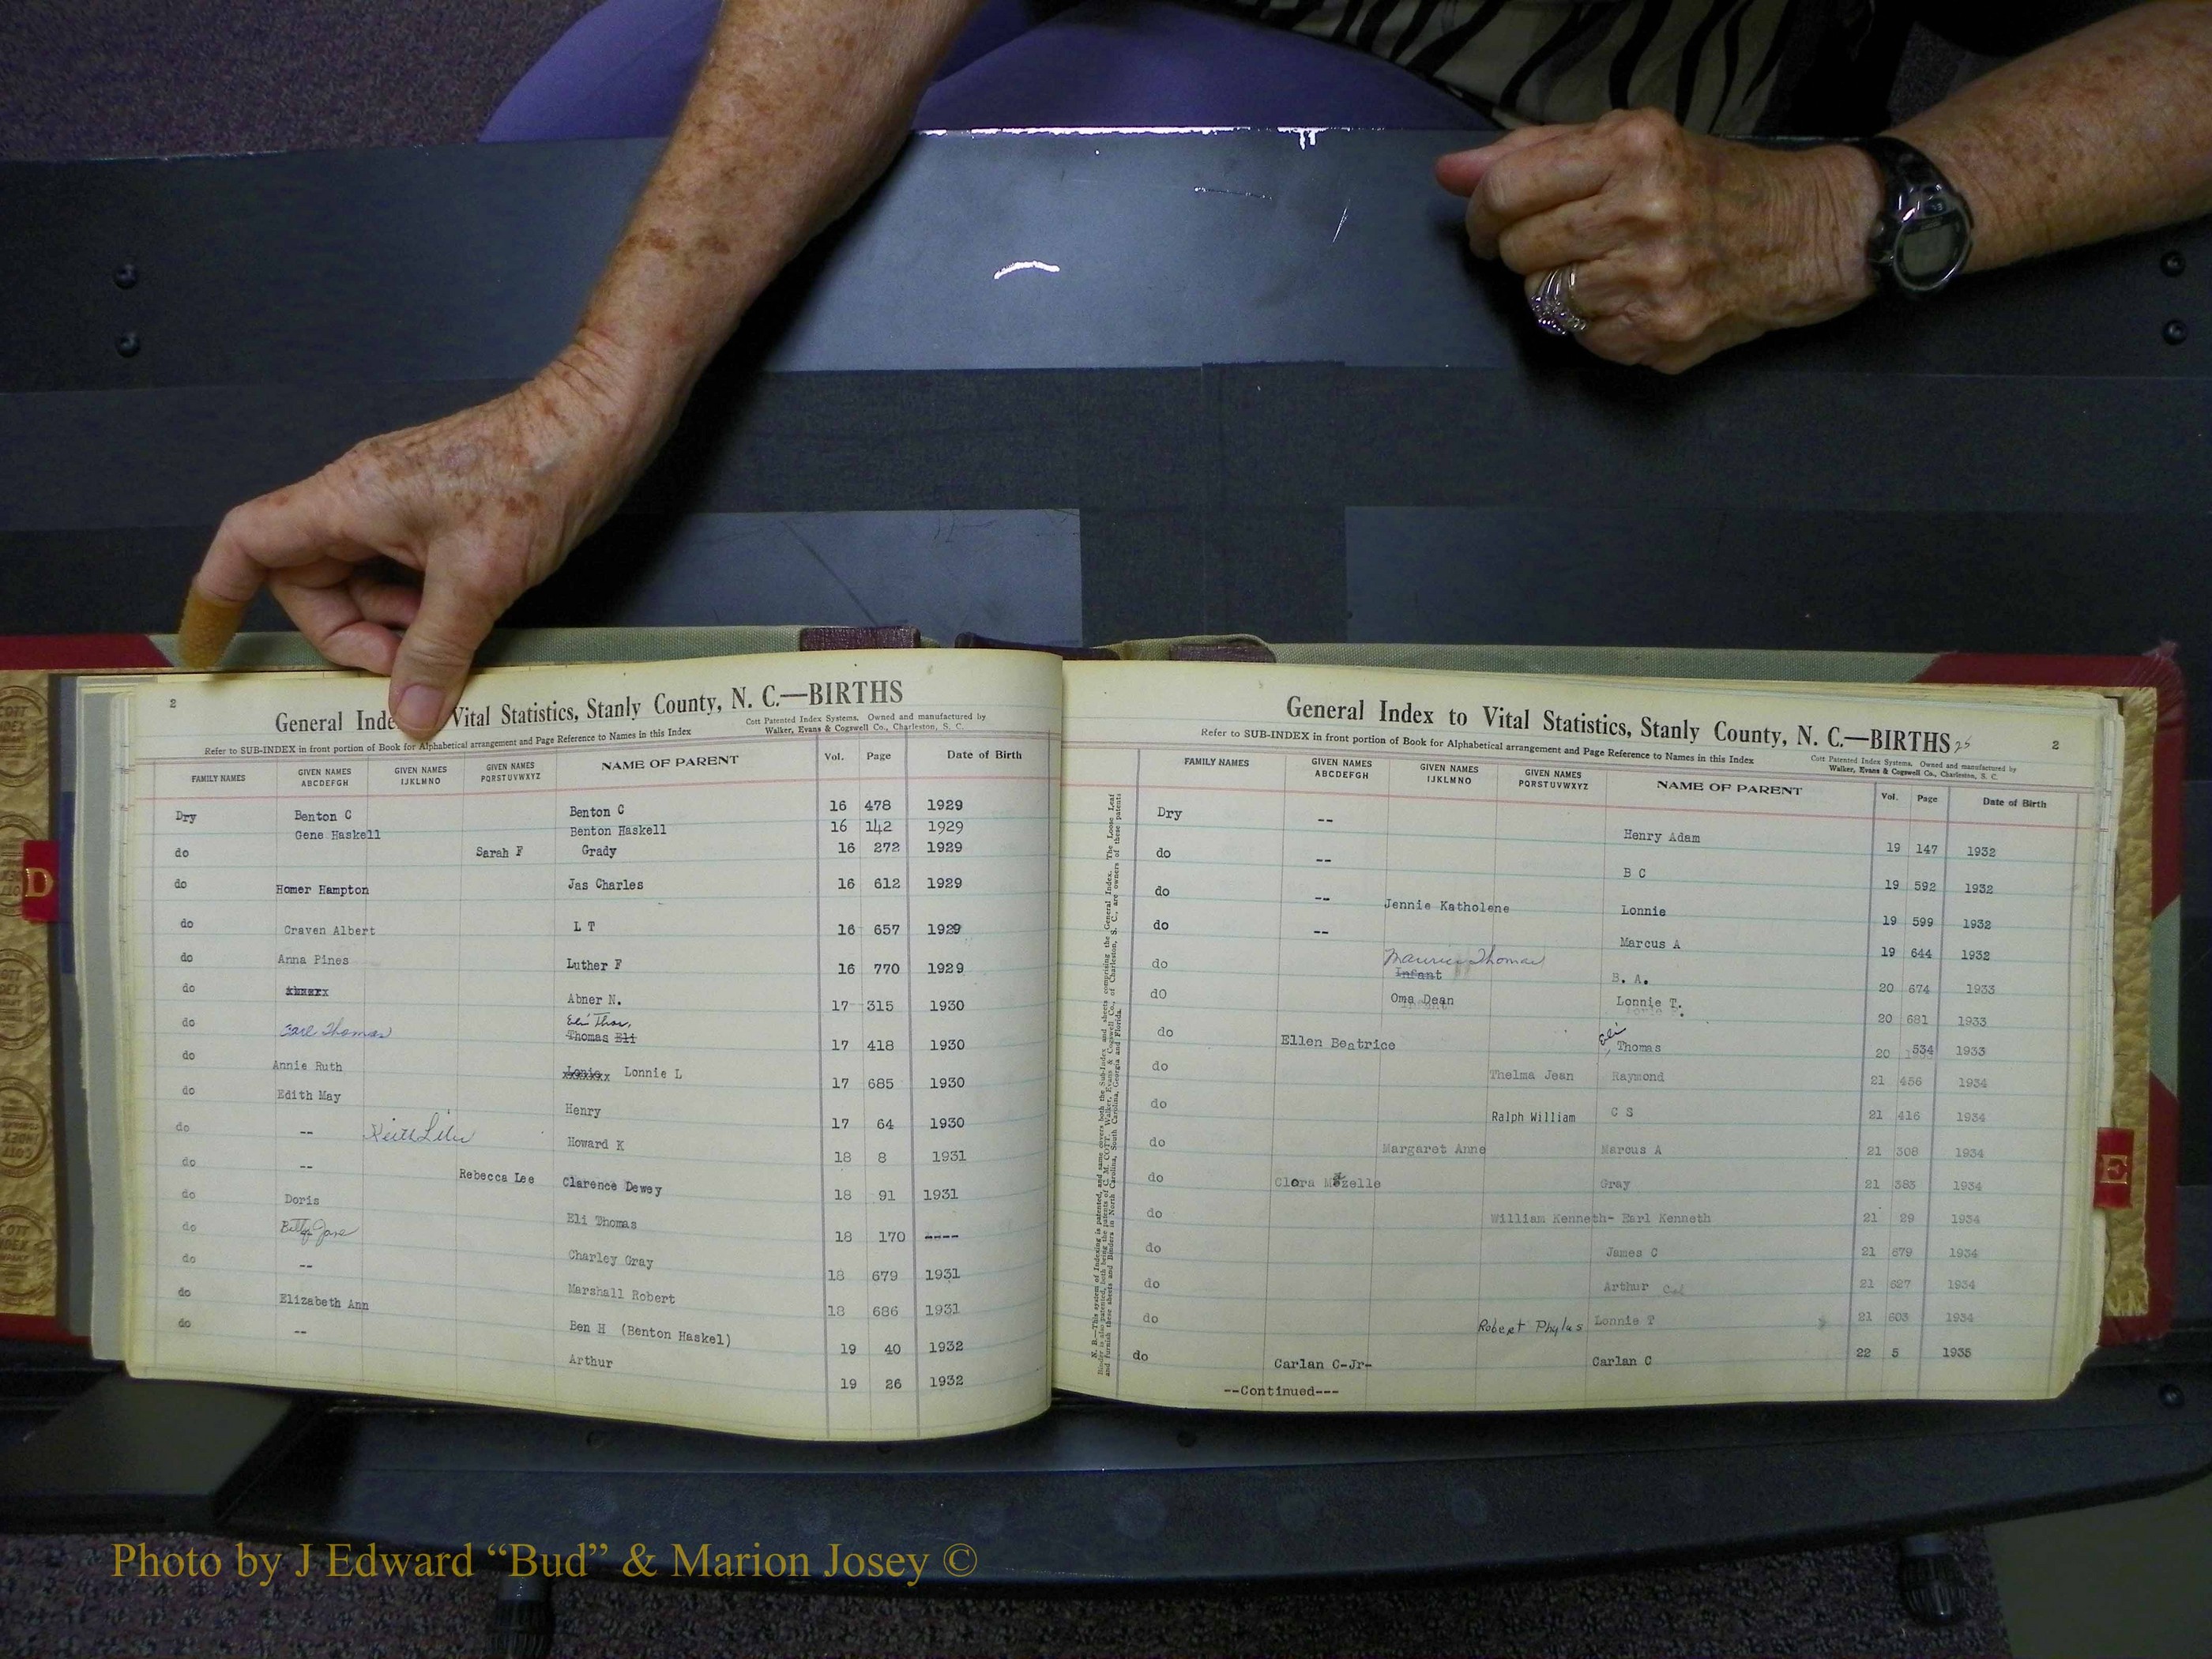 2
General Inde Vital Statistics, Stanly County, N. C.—BIRTHS
Cott Patented Index Systems. Owned and manufactured by
Walker, Evans & Cogswell Co., Charleston, S. C.
Refer to SUB-INDEX in front portion of Book for Alphabetical arrangement and Page Reference to Names in this Index
FAMILY NAMES GIVEN NAMES ABCDEFGH GIVEN NAMES IJKLMNO GIVEN NAMES PQRSTUVWXYZ NAME OF PARENT Vol. Page Date of Birth
Dry Benton C Benton C 16 478 1929
Gene Haskell Benton Haskell 16 142 1929
do Sarah F Grady 16 272 1929
do Homer Hampton Jas Charles 16 612 1929
do Craven Albert L T 16 657 1929
do Anna Pines Luther F 16 770 1929
do Abner N. 17 315 1930
do Carl Thomas Eli Thos, Thomas Eli 17 418 1930
do Annie Ruth Lonnie L 17 685 1930
do Edith May Henry 17 64 1930
do -- Keith Howard K 18 8 1931
do -- Rebecca Lee Clarence Dewey 18 91 1931
do Doris Eli Thomas 18 170 ----
do Betty Jane Charley Gray 18 679 1931
do -- Marshall Robert 18 686 1931
do Elizabeth Ann Ben H (Benton Haskel) 19 40 1932
do -- Arthur 19 26 1932
General Index to Vital Statistics, Stanly County, N. C.—BIRTHS 25
2
Refer to SUB-INDEX in front portion of Book for Alphabetical arrangement and Page Reference to Names in this Index
Cott Patented Index Systems. Owned and manufactured by
Walker, Evans & Cogswell Co., Charleston, S. C.
FAMILY NAMES GIVEN NAMES ABCDEFGH GIVEN NAMES IJKLMNO GIVEN NAMES PQRSTUVWXYZ NAME OF PARENT Vol. Page Date of Birth
Dry -- Henry Adam 19 147 1932
do -- B C 19 592 1932
do -- Jennie Katholene Lonnie 19 599 1932
do -- Marcus A 19 644 1932
do Maurice Thomas Infant B. A. 20 674 1933
dO Oma Dean Lonnie T. 20 681 1933
do Ellen Beatrice Eli, Thomas 20 534 1933
do Thelma Jean Raymond 21 456 1934
do Ralph William C S 21 416 1934
do Margaret Anne Marcus A 21 308 1934
do Clora Mozelle Gray 21 383 1934
do William Kenneth- Earl Kenneth 21 29 1934
do James C 21 679 1934
do Arthur Col 21 627 1934
do Robert Phylus Lonnie T 21 603 1934
do Carlan C-Jr- Carlan C 22 5 1935
--Continued---
N. B.—This system of Indexing is patented, and same covers both the Sub-Index and sheets comprising the General Index. The Loose Leaf
D
E
Photo by J Edward “Bud” & Marion Josey ©